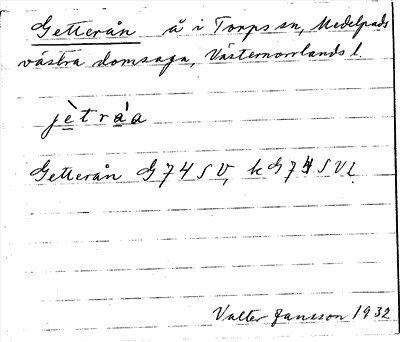 Getterån å i Torps sn, Medelpads
västra domsaga, Västernorrlands l.
jè̱tra̱̍a
Getterån G74SV, k G74SVl.
Valter Jansson 1932